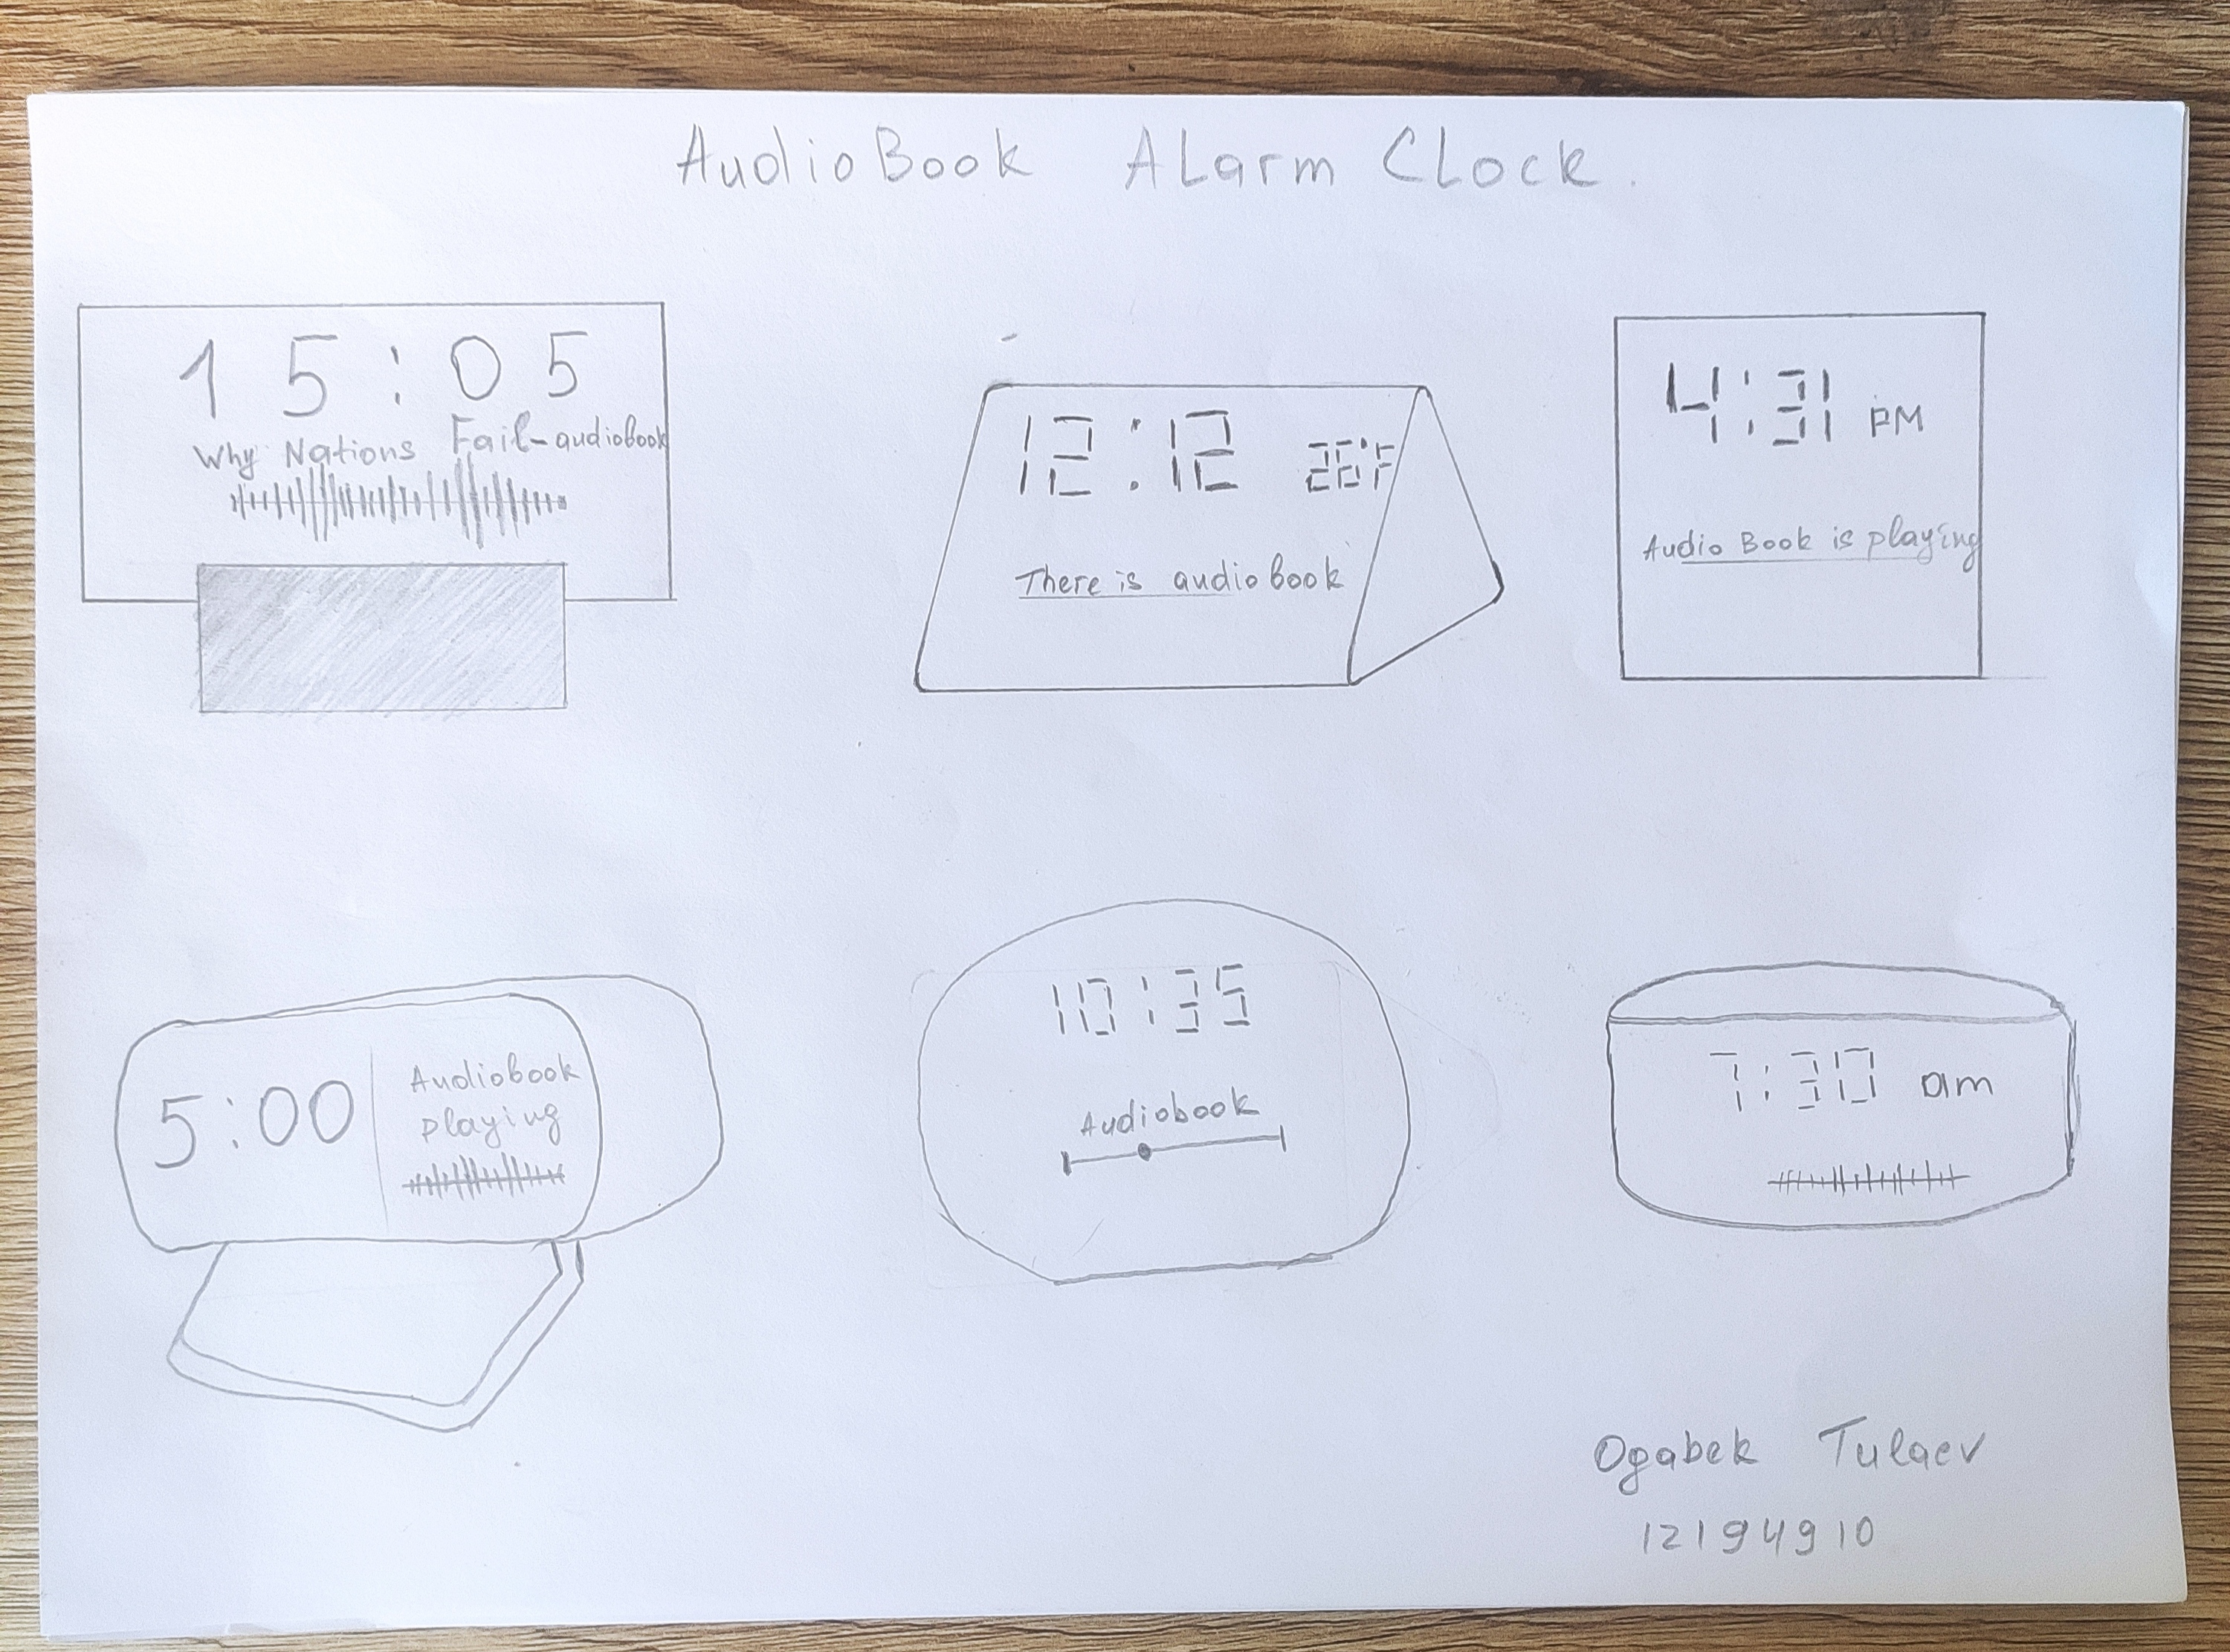 AudioBook ALarm CLock.
15:05
Why Nations Fail-audiobook
12:12 26°F
There is audiobook
4:31 PM
Audio Book is playing
5:00
Audiobook
playing
10:35
Audiobook
7:30 am
Ogabek Tulaev
12194910